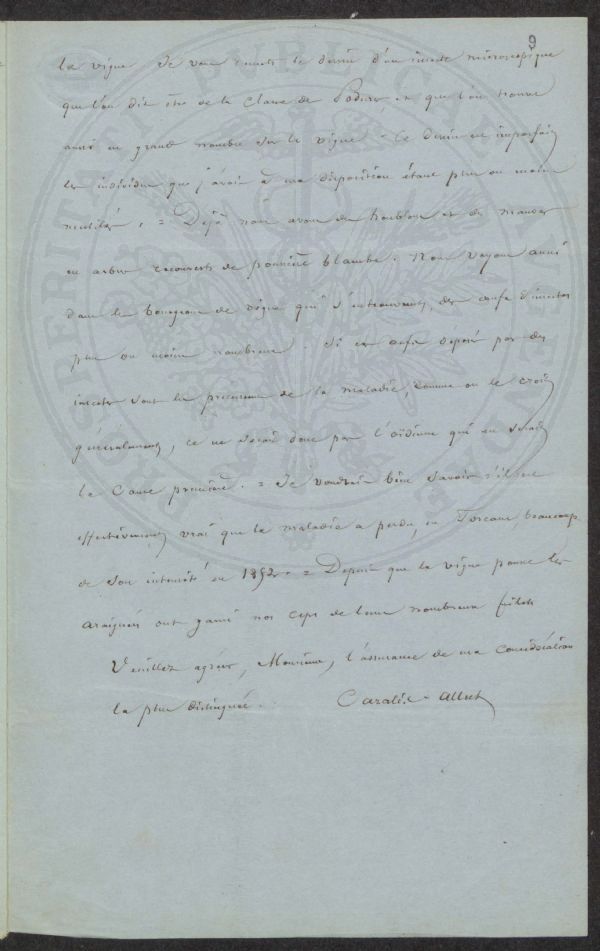 9
la vigne. Je vous envoie le dessin d'un insecte microscopique
que l'on dit être de la classe de Podures et que l'on trouve
aussi en grand nombre sur la vigne. Ce dessin est imparfait
les individus que j'avais à ma disposition étant plus ou moins
mutilés. = Déjà nous avons des houblons et des
ou arbres recouverts de poussière blanche. Nous voyons aussi
dans les bourgeons de vigne qui s'entrouvrent, des oeufs d'insectes
plus ou moins nombreux. Si ces oeufs déposés par des
insectes sont les précurseurs de la maladie, comme on le croit
généralement, ce ne serait donc pas l'oïdium qui en serait
la cause première. = Je voudrais bien savoir s'il est
effectivement vrai que la maladie a perdu, en Toscane, beaucoup
de son intensité en 1852. = Depuis que la vigne pousse les
araignées ont garni nos ceps de leurs nombreux filets
Veuillez agréer, Monsieur, l'assurance de ma considération
la plus distinguée.
Cazalis-Allut
PROSPERITATI PUBLICAE